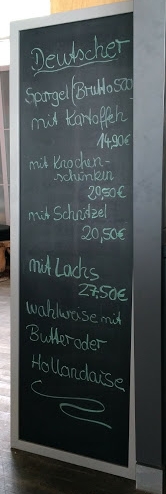 Deutscher
Spargel (Brutto 500
mit Kartoffeln
14,90€
mit Knochen-
schinken
20,50€
mit Schnitzel
20,50€
mit Lachs
27,50€
wahlweise mit
Butter oder
Hollandaise